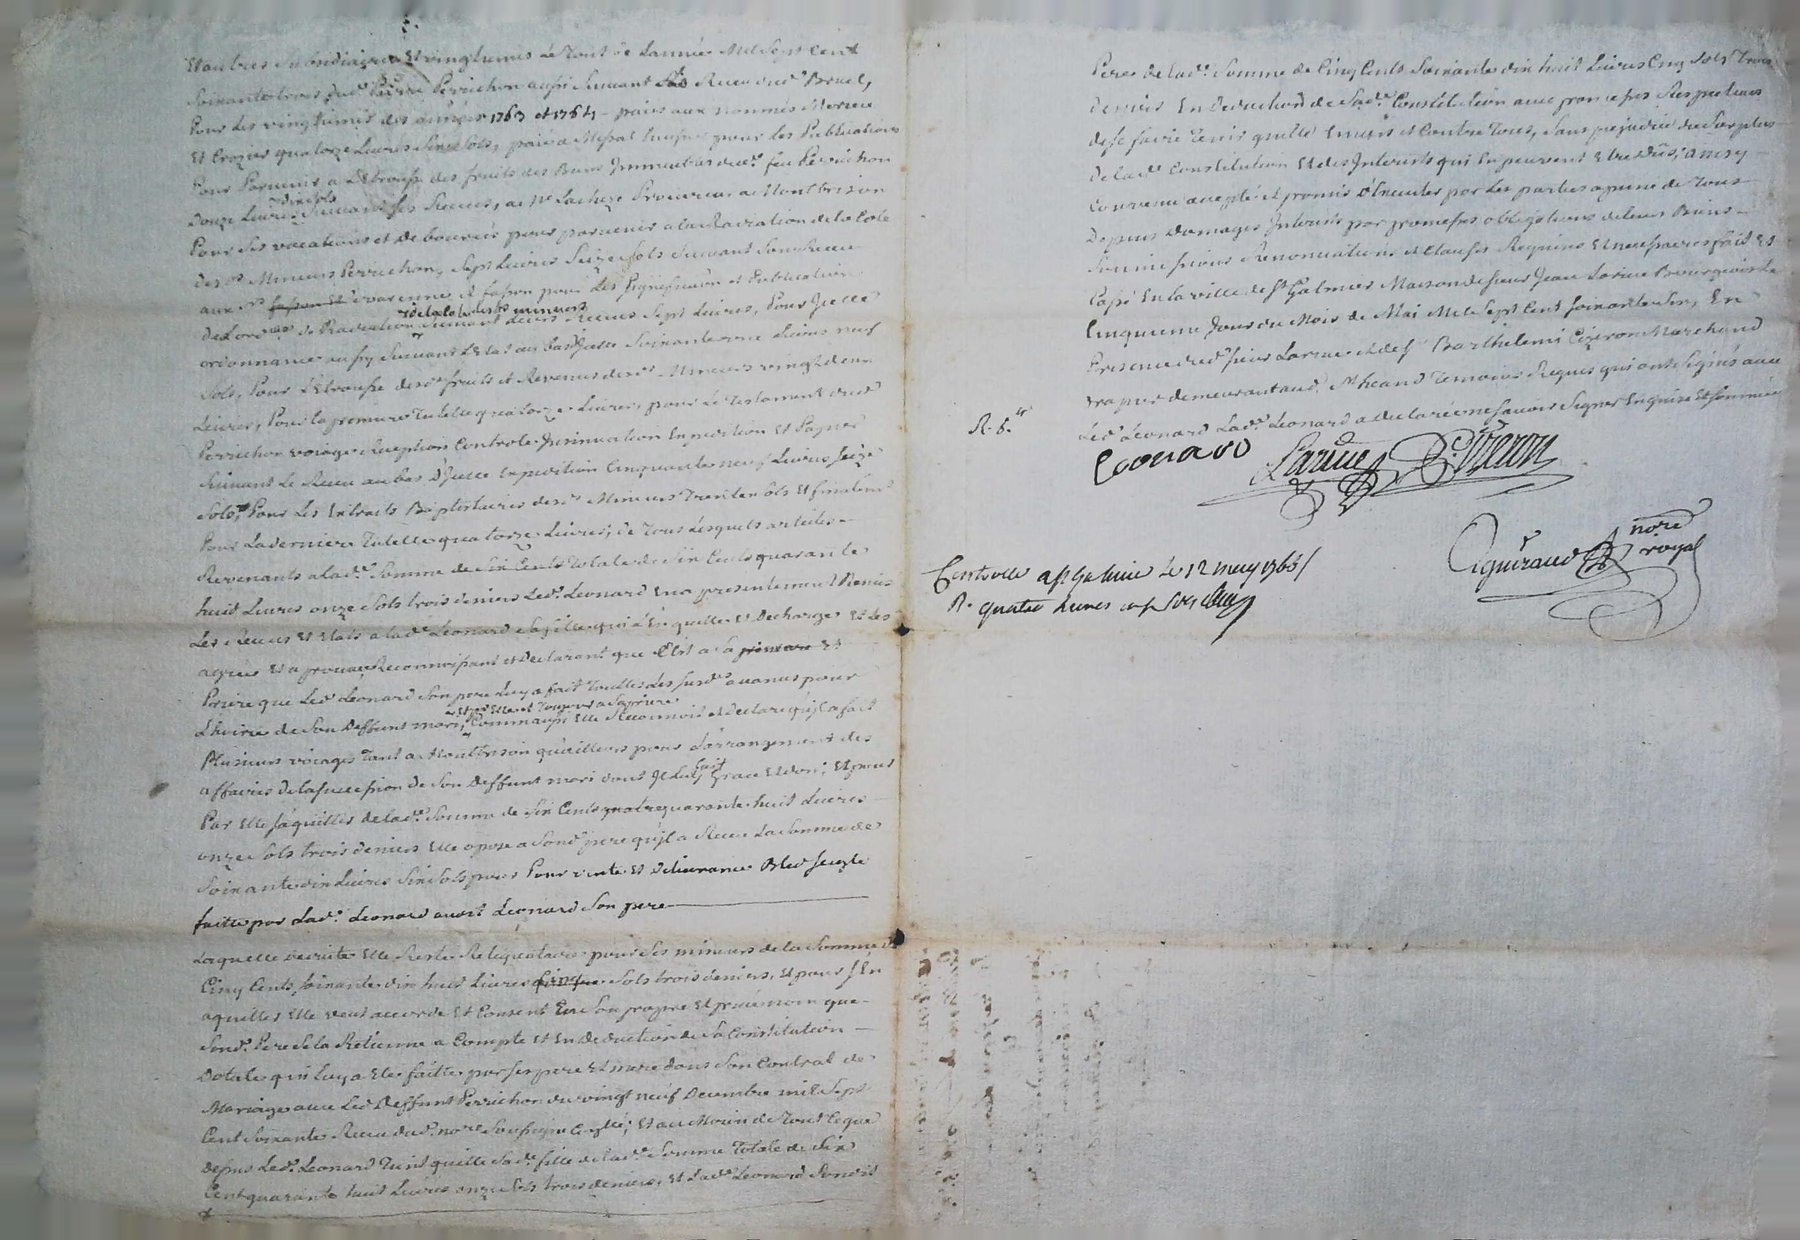 Et autres subsidiaires et vingtiemes le Tout de Lannée Mil Sept Cent
Soixante trois dud. Perrichon aussi Suivant Recu dud. Bruel,
Pour Les vingtiemes des années 1763 et 1764 - paiés aux nommés Merieu
Et Crozier quatorze Livres Six Sols, paié a Messat huissier pour Les Publications
Pour Parvenir a L'Etrousse des fruits des Biens Immeubles dud. feu Perrichon
Douze Livres dix sols Suivant Ses Recus, a Me Lacheze Procureur a Montbrison
Pour Ses vacations et De bourcés pour parvenir a la Radiation de la Cote
desd. Mineurs Perrichon, Sept Livres Seize Sols Suivant Son Recu
aux varenne et fasson pour Les Signification et Publication
de Lord.ce de Radiation de la cotte desd. mineurs Suivant Leurs Recus Sept Livres, Pour Icelle
ordonnance aussy Suivant L'Etat au bas d'Jcelle Soixante onze Livres neuf
Sols, Pour L'Etrousse desd. fruits et Revenus desd. Mineurs vingt deux
Livres, Pour La premiere Tutelle quatorze Livres, pour Le Testament dud.
Perrichon voiage Reception Controle Insinuation Expedition Et Papier
Suivant Le Recu au bas d'Jcelle Expedition Cinquante neuf Livres Seize
Sols, Pour Les Extraits Baptistaires desd. Mineurs Trente Sols Et finalem.t
Pour La derniere Tutelle quatorze Livres, de Tous Lesquels articles
Revenants a lad. Somme de Six Cents Totale de Six Cents quarante
huit Livres onze Sols trois deniers Led. Leonard En a presentement Remis
Les Recus Et Etats a lad. Leonard Sa fille qui L'En quitte Et Decharge Et Les
agrée Et aprouve Reconnoissant et Declarant que C'Est a Sa priere Et
Priere que Led. Leonard Son pere Luy a fait Toutes Les susd. avances pour
L'hoirie de Son Deffunt mari, Comme aussi Elle Reconnoit et Declare qu'il a fait
Plusieurs voiages Tant a Montbrison qu'ailleurs pour L'arrangement des
affaires de la succession de Son Deffunt mari dont Il Luy fait Grace Et don; Et pour
Par Elle s'aquitter de lad. Somme de Six Cents quatre quarante huit Livres
onze Sols trois deniers Elle opose a Sond. pere qu'il a Recu La Somme de
Soixante dix Livres Six Sols pour Pour vente Et Delivrance Bled Seigle
faitte par Lad. Leonard aud. Leonard Son pere
Laquelle deduite Elle Reste Reliquataire pour Ses mineurs de la Somme de
Cinq Cents Soixante dix huit Livres cinq Sols trois deniers, Et pour S'En
aquitter Elle veut accorde Et Consent En Son propre Et privé nom que
Sond. Pere Se la Retienne a Compte Et En Deduction de Sa Constitution
Dotale qui Luy a Ete faitte par Ses pere Et mere dans Son Contrat de
Mariage avec Led. Deffunt Perrichon du vingt neuf Decembre mil Sept
Cent Soixante Recu dud. nore Soussigné Controlé; Et au Moien de Tout Ce que
Dessus Led. Leonard Tient quitte Sad. fille de lad. Somme Totale de Six
Cent quarante huit Livres onze Sols trois deniers, Et Lad. Leonard Sond.
Pere de lad. Somme de Cinq Cents Soixante dix huit Livres Cinq Sols Trois
Deniers En Deduction de Sad. Constitution avec promesses Respectives
de se faire Tenir quitte Envers et Contre Tous, Sans prejudice du Surplus
De lad. Constitution Et des Interets qui En peuvent Etre Dus; ainsy
Convenu accepté et promis D'Executer par Les parties a peine de Tous
Depens Domages Interets par promesses obligations de leurs Biens
Soumissions Renonciations et Clauses Requises Et necessaires fait Et
Passé En la ville de St Galmier Maison de sieur Jean Larue Bourgeois Le
Cinquieme Jour du Mois de Mai Mil Sept Cent Soixante Six, En
Presence dud. sieur Larue et de Sr Barthelemi Cizeron Marchand
Drapier demeurant aud. St Galmier Temoins Requis qui ont Signés avec
Led. Leonard Lad. Leonard a declaré ne scavoir Signer Enquise Et Sommée
R. S.
Leonard Larue B. Cizeron
Aguiraud nore royal
Controllé a St Galmier Le 12 may 1766
R. quatre livres